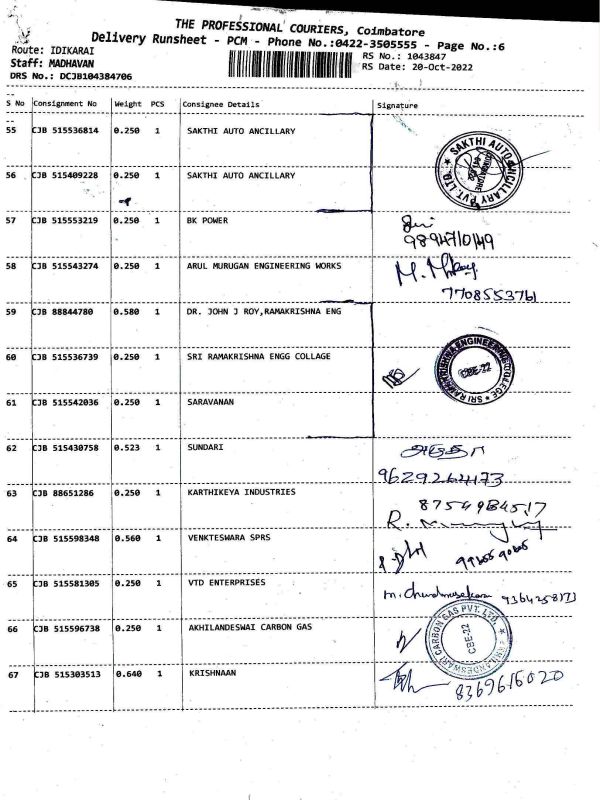 THE PROFESSIONAL COURIERS, Coimbatore
Delivery Runsheet - PCM - Phone No.:0422-3505555 - Page No.:6
Route: IDIKARAI
RS No.: 1043847
Staff: MADHAVAN
RS Date: 20-Oct-2022
DRS No.: DCJB104384706
S No Consignment No Weight PCS Consignee Details Signature
55 CJB 515536814 0.250 1 SAKTHI AUTO ANCILLARY
SAKTHI AUTO ANCILLARY PVT. LTD.
56 CJB 515409228 0.250 1 SAKTHI AUTO ANCILLARY
57 CJB 515553219 0.250 1 BK POWER
9894710149
58 CJB 515543274 0.250 1 ARUL MURUGAN ENGINEERING WORKS
7708553761
59 CJB 88844780 0.580 1 DR. JOHN J ROY,RAMAKRISHNA ENG
60 CJB 515536739 0.250 1 SRI RAMAKRISHNA ENGG COLLAGE
SRI RAMAKRISHNA ENGINEERING COLLEGE
CBE-22
61 CJB 515542036 0.250 1 SARAVANAN
62 CJB 515430758 0.523 1 SUNDARI
63 CJB 88651286 0.250 1 KARTHIKEYA INDUSTRIES
64 CJB 515598348 0.560 1 VENKTESWARA SPRS
65 CJB 515581305 0.250 1 VTD ENTERPRISES
66 CJB 515596738 0.250 1 AKHILANDESWAI CARBON GAS
CARBON GAS PVT. LTD.
CBE-22
67 CJB 515303513 0.640 1 KRISHNAAN
8369616020